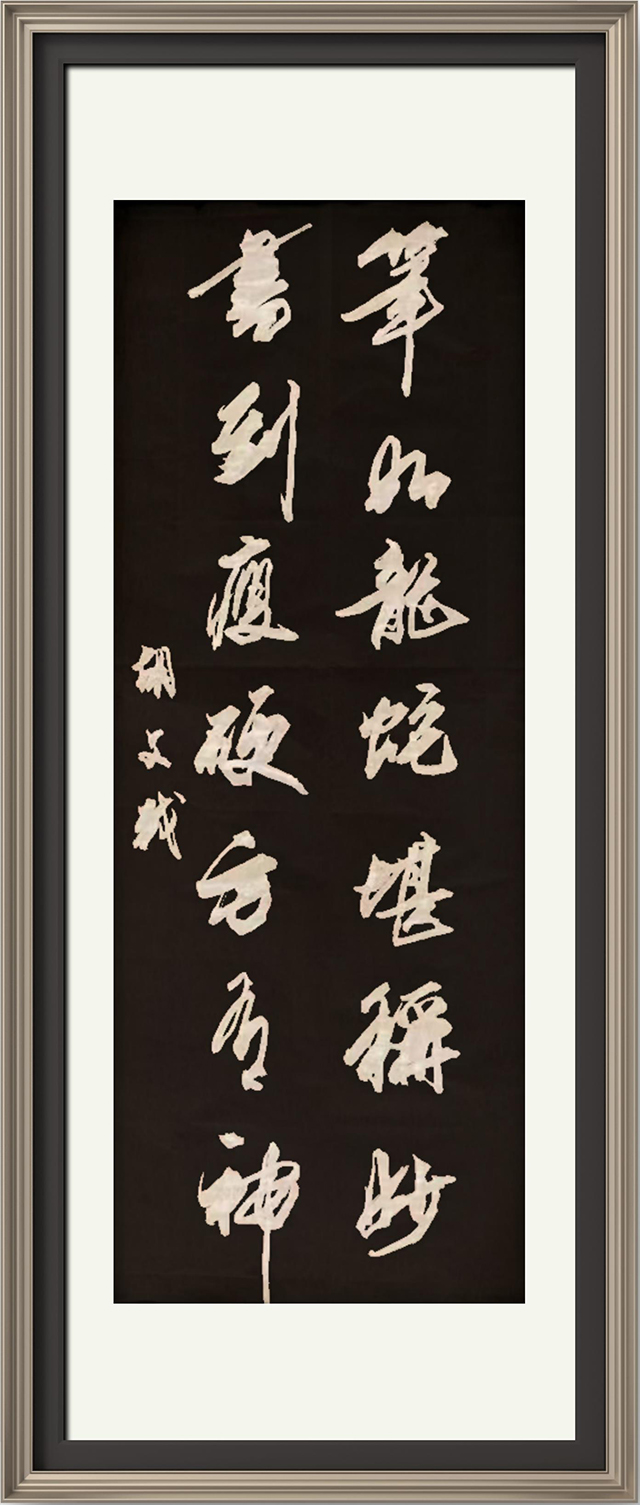 筆如龍蛇堪稱妙
書到瘦硬方有神
胡文